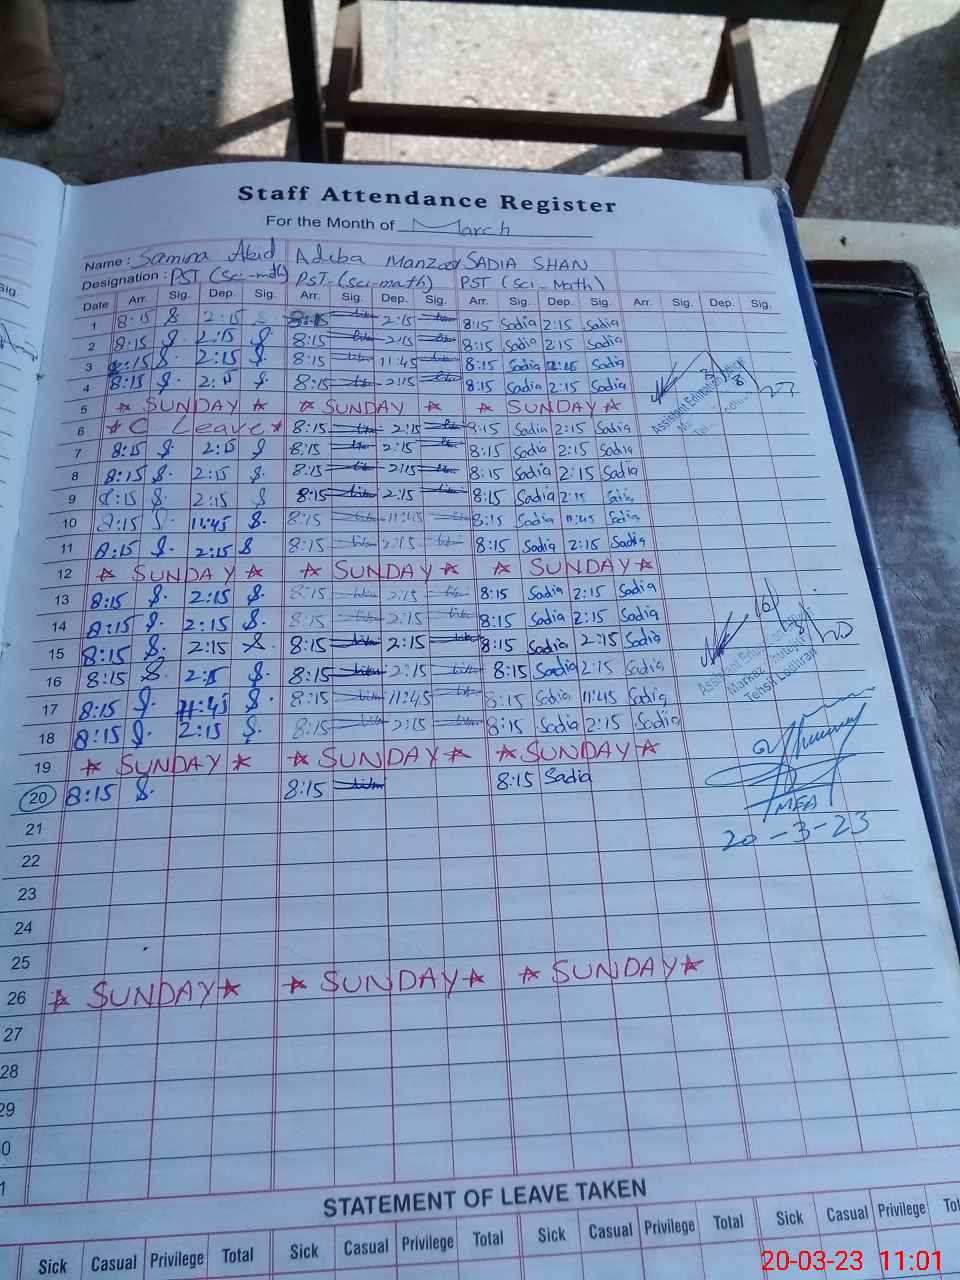 Staff Attendance Register
For the Month of March
Name : Samina Abid Adiba Manzoor SADIA SHAN
Designation : PST (Sci-math) PST-(sci-math) PST (Sci - Math)
Date Arr. Sig. Dep. Sig. Arr. Sig. Dep. Sig. Arr. Sig. Dep. Sig. Arr. Sig. Dep. Sig.
1 8:15 2:15 8:15 2:15 8:15 Sadia 2:15 Sadia
2 8:15 2:15 8:15 2:15 8:15 Sadia 2:15 Sadia
3 8:15 2:15 8:15 11:45 8:15 Sadia Sadia
4 8:15 2:15 8:15 2:15 8:15 Sadia 2:15 Sadia
5 SUNDAY SUNDAY SUNDAY
6 C. Leave 8:15 2:15 8:15 Sadia 2:15 Sadia
7 8:15 2:15 8:15 2:15 8:15 Sadia 2:15 Sadia
8 8:15 2:15 8:15 2:15 8:15 Sadia 2:15 Sadia
9 8:15 2:15 8:15 2:15 8:15 Sadia 2:15 Sadia
10 8:15 11:45 8:15 11:45 8:15 Sadia 11:45 Sadia
11 8:15 2:15 8:15 2:15 8:15 Sadia 2:15 Sadia
12 SUNDAY SUNDAY SUNDAY
13 8:15 2:15 8:15 2:15 8:15 Sadia 2:15 Sadia
14 8:15 2:15 8:15 2:15 8:15 Sadia 2:15 Sadia
15 8:15 2:15 8:15 2:15 8:15 Sadia 2:15 Sadia
16 8:15 2:15 8:15 2:15 8:15 Sadia 2:15 Sadia
17 8:15 11:45 8:15 11:45 8:15 Sadia 11:45 Sadia
18 8:15 2:15 8:15 2:15 8:15 Sadia 2:15 Sadia
19 SUNDAY SUNDAY SUNDAY
20 8:15 8:15 8:15 Sadia
MEA
20-3-23
21
22
23
24
25
26 SUNDAY SUNDAY SUNDAY
27
28
29
STATEMENT OF LEAVE TAKEN
Sick Casual Privilege Total Sick Casual Privilege Total Sick Casual Privilege Total Sick Casual Privilege
Assistant Education
Tehsil Lodhran
20-03-23 11:01